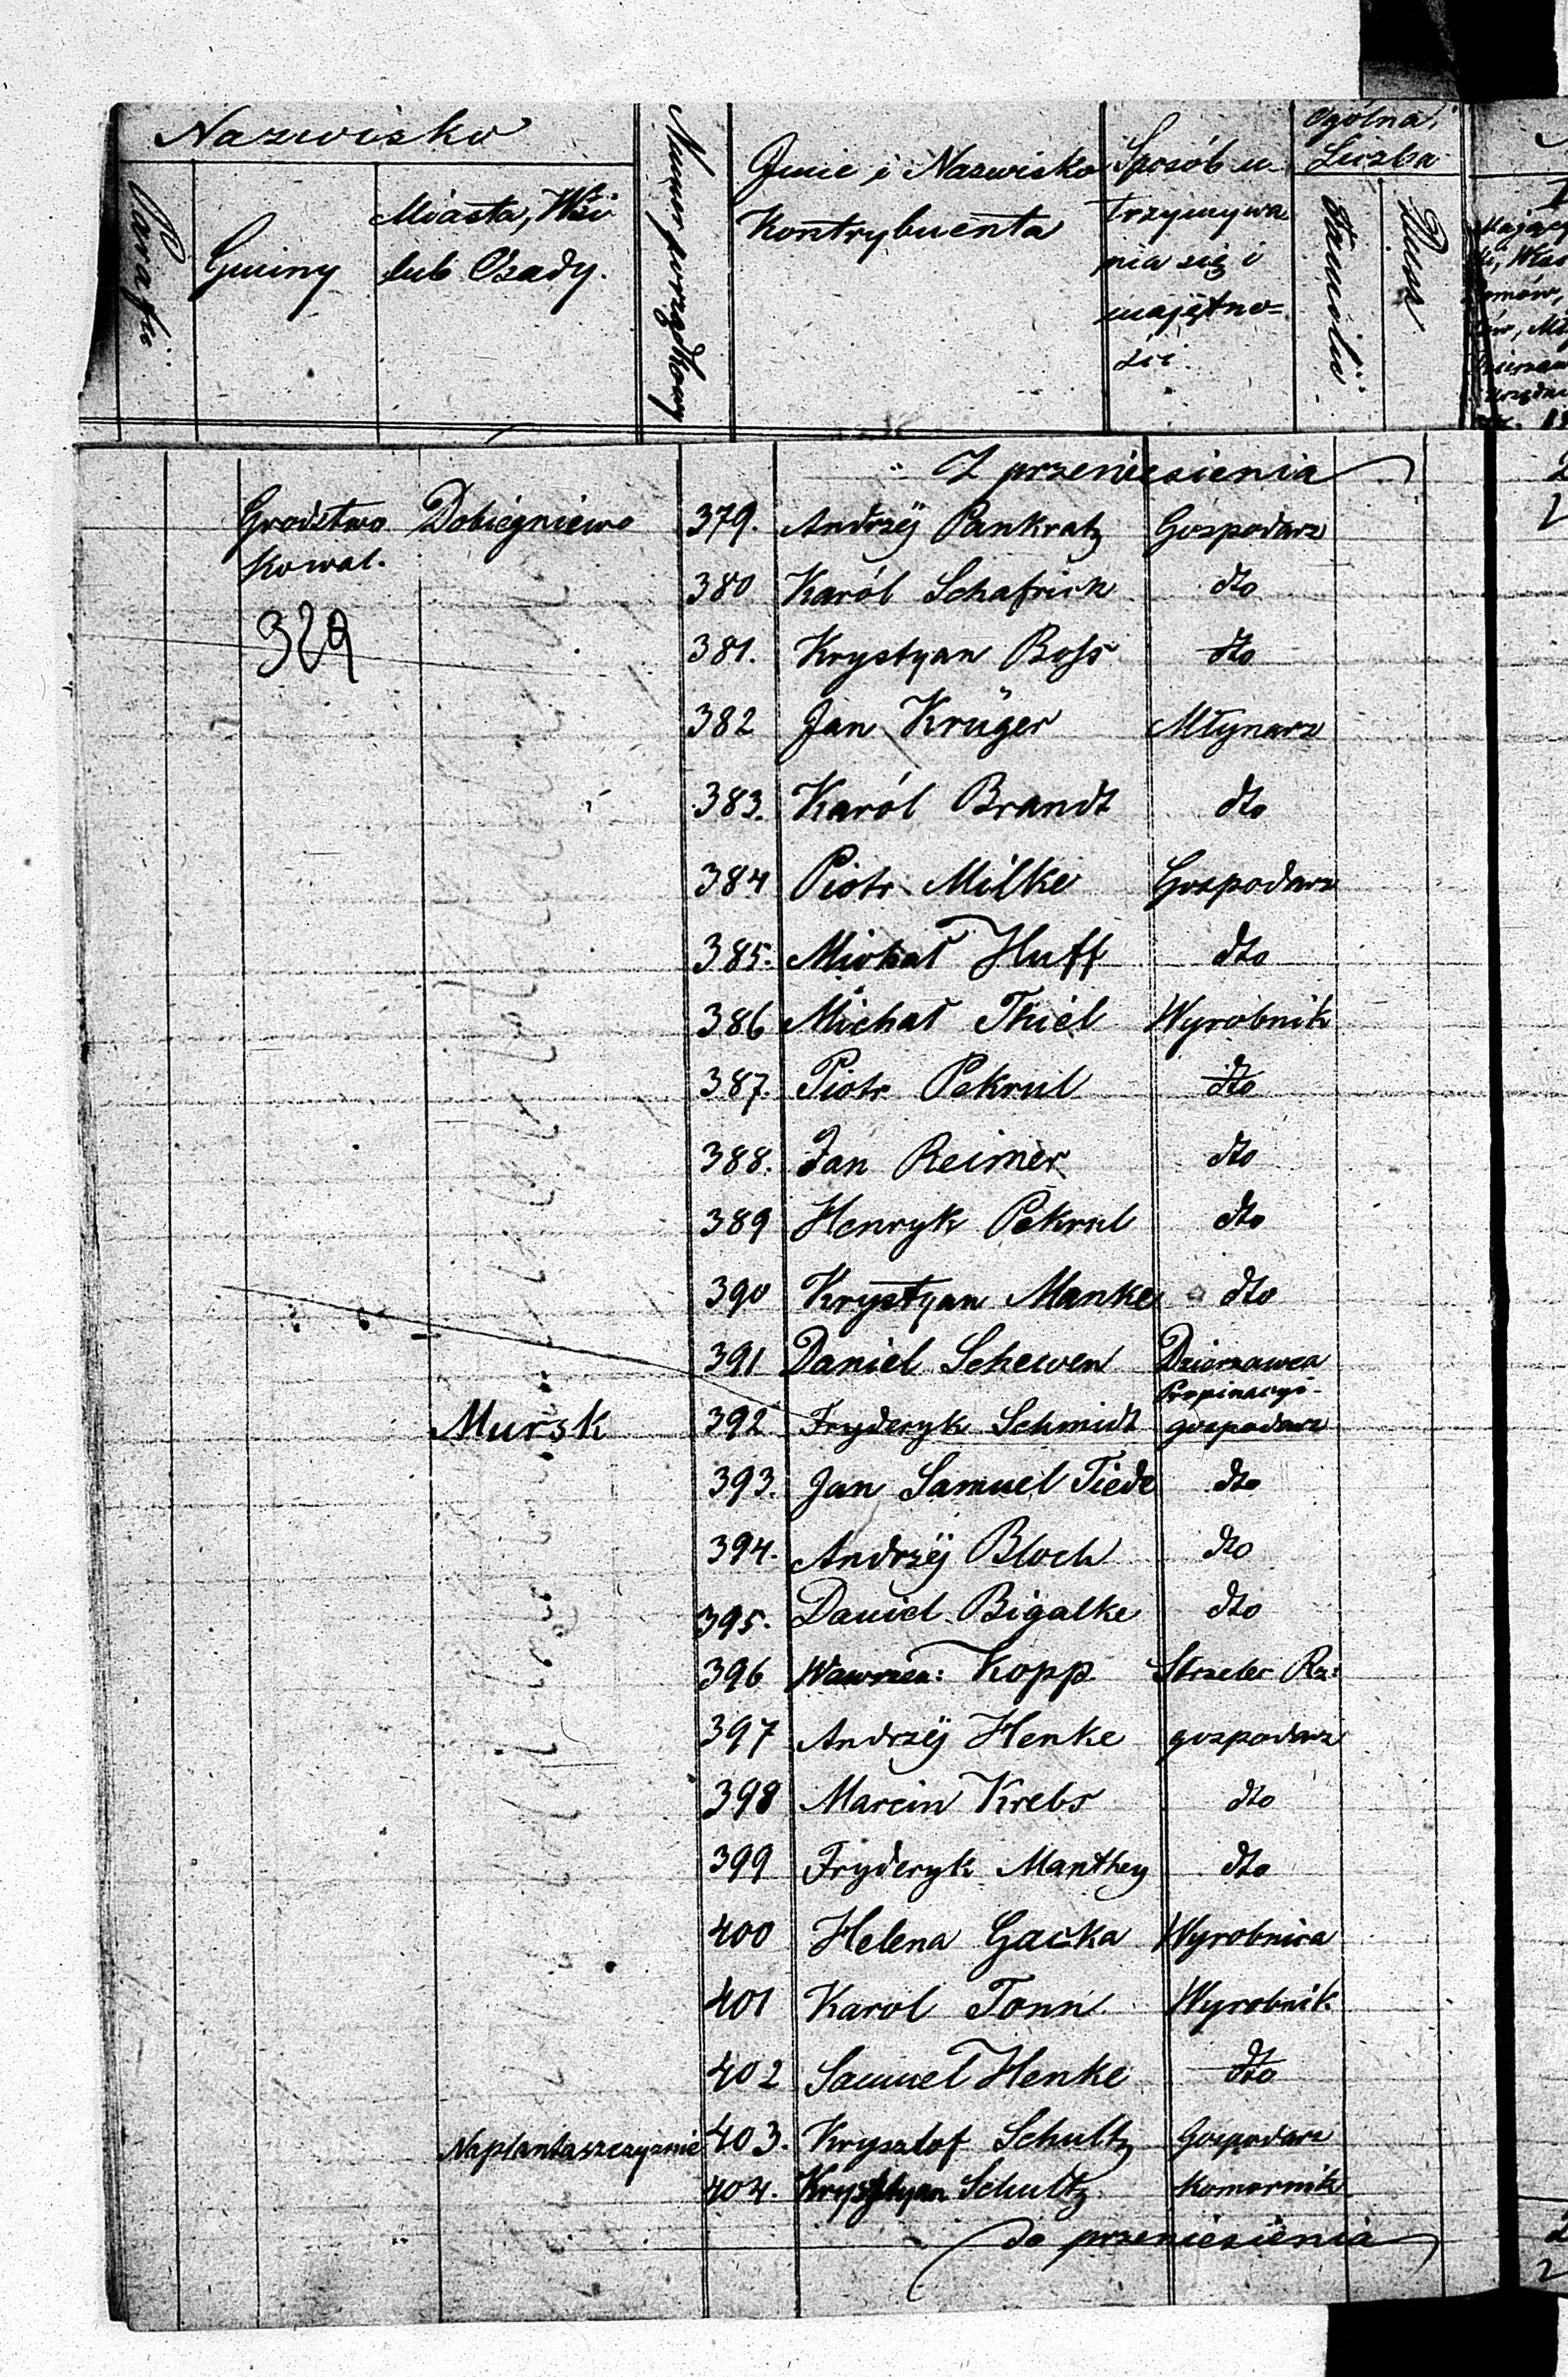 Nazwisko
Parafii
Gminy
Miasta, Wsi
lub Osady.
Numer porządkowy
Imie i Nazwisko
Kontrybuenta
Sposób u-
trzymywa
nia się i
majętno=
ści
Ogólna
Liczba
Familii
Dusz
Z przeniesienia
Grodztwo Dobiegniewo 379. Andrzÿ Pankratz Gospodarz
Kowal.
380 Karól Schafrick dto
329
381. Krystyan Boss dto
382 Jan Krüger Młynarz
383. Karól Brandt dto
384 Piotr Milke Gospodarz
385. Michał Huff dto
386 Michał Thiel Wyrobnik
387. Piotr Pekrul dto
388. Jan Reimer dto
389 Henryk Pekrul dto
390 Krystyan Manke dto
391 Daniel Schewen Dzierzawca
Propinacyi
Mursk 392 Fryderyk Schmidt gospodarz
393. Jan Samuel Tiede dto
394. Andrzÿ Bloch dto
395. Daniel Bigalke dto
396 Wawrzen: Kopp Strzelec Rz:
397 Andrzÿ Henke gospodarz
398 Marcin Krebs dto
399 Fryderyk Manthey dto
400 Helena Gacka Wyrobnica
401 Karol Tonn Wyrobnik
402 Samuel Henke dto
403. Krysztof Schultz Gospodarz
404. Krystyan Schultz Komornik
do przeniesienia